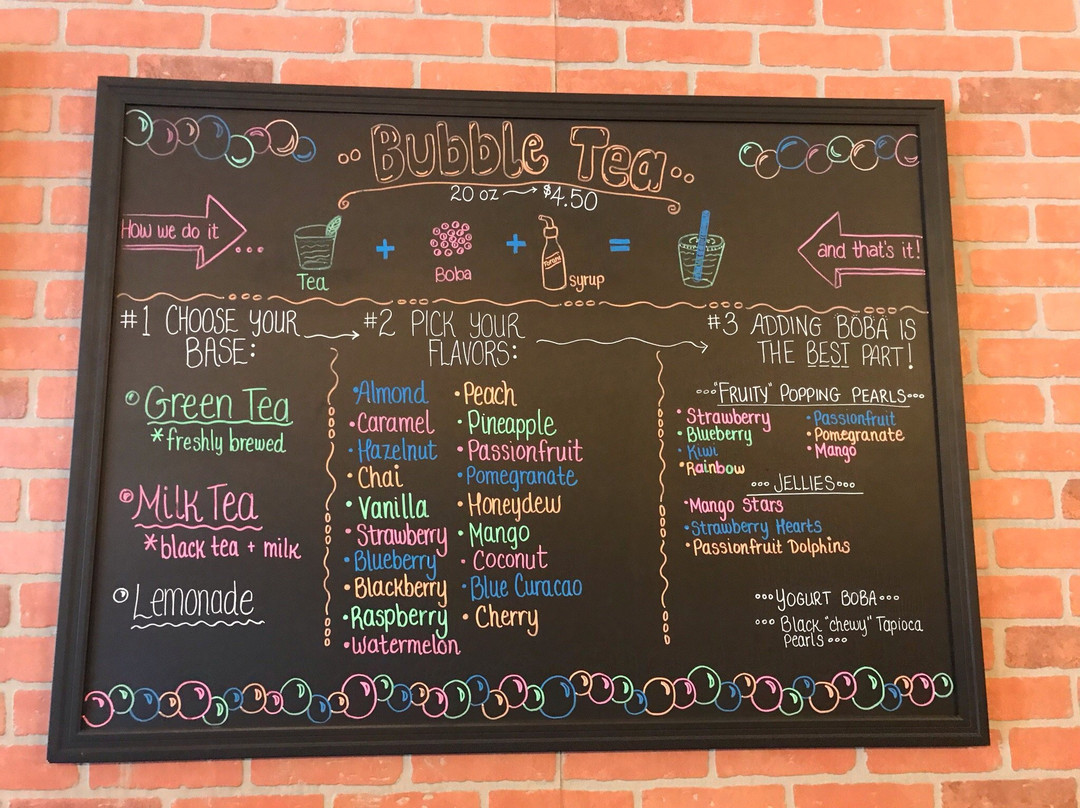 Bubble Tea
20 oz → $4.50
How we do it ...
Tea
+
Boba
+
Torani
syrup
=
and that's it!
#1 CHOOSE YOUR
BASE:
Green Tea
*freshly brewed
Milk Tea
*black tea + milk
Lemonade
#2 PICK YOUR
FLAVORS:
•Almond
•Caramel
•Hazelnut
•Chai
•Vanilla
•Strawberry
•Blueberry
•Blackberry
•Raspberry
•Watermelon
•Peach
•Pineapple
•Passionfruit
•Pomegranate
•Honeydew
•Mango
•Coconut
•Blue Curacao
•Cherry
#3 ADDING BOBA IS
THE BEST PART!
"FRUITY" POPPING PEARLS
•Strawberry
•Blueberry
•Kiwi
•Rainbow
•Passionfruit
•Pomegranate
•Mango
JELLIES
•Mango Stars
•Strawberry Hearts
•Passionfruit Dolphins
YOGURT BOBA
Black "chewy" Tapioca
Pearls